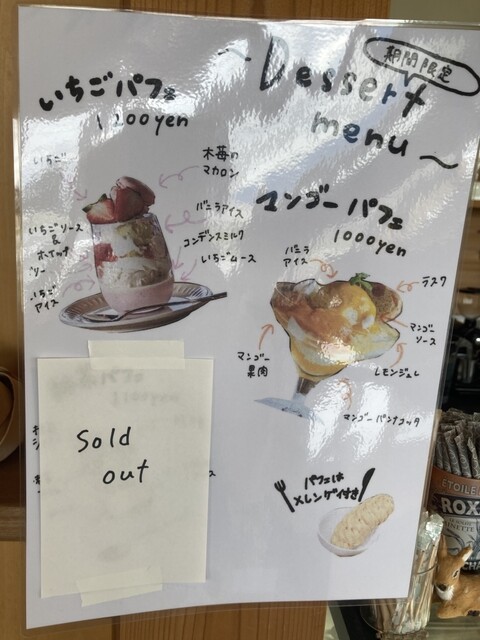 ~Dessert
期間限定
menu~
いちごパフェ
1100yen
いちご
木苺の
マカロン
バニラアイス
コンデンスミルク
いちごムース
いちごソース
&
ホイップ
いちご
アイス
マンゴーパフェ
1000yen
バニラ
アイス
ラスク
マンゴー
ソース
レモンジュレ
マンゴー
果肉
マンゴーパンナコッタ
Sold
out
パフェは
メレンゲ付き
ETOILE